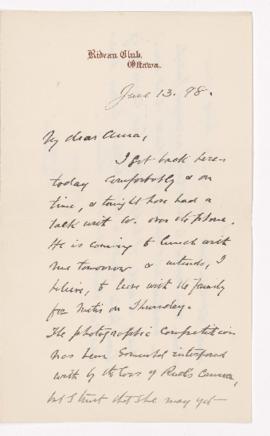 Rideau Club,
Ottawa.
June 13. 98.
My dear Anna,
I got back here
today comfortably & on
time, & tonight have had a
talk with W. over telephone.
He is coming to lunch with
me tomorrow & intends, I
believe, to leave with the family
for Metis on Thursday.
The photographic competition
has been somewhat interfered
with by the loss of Ruth's camera,
but I trust that she may yet